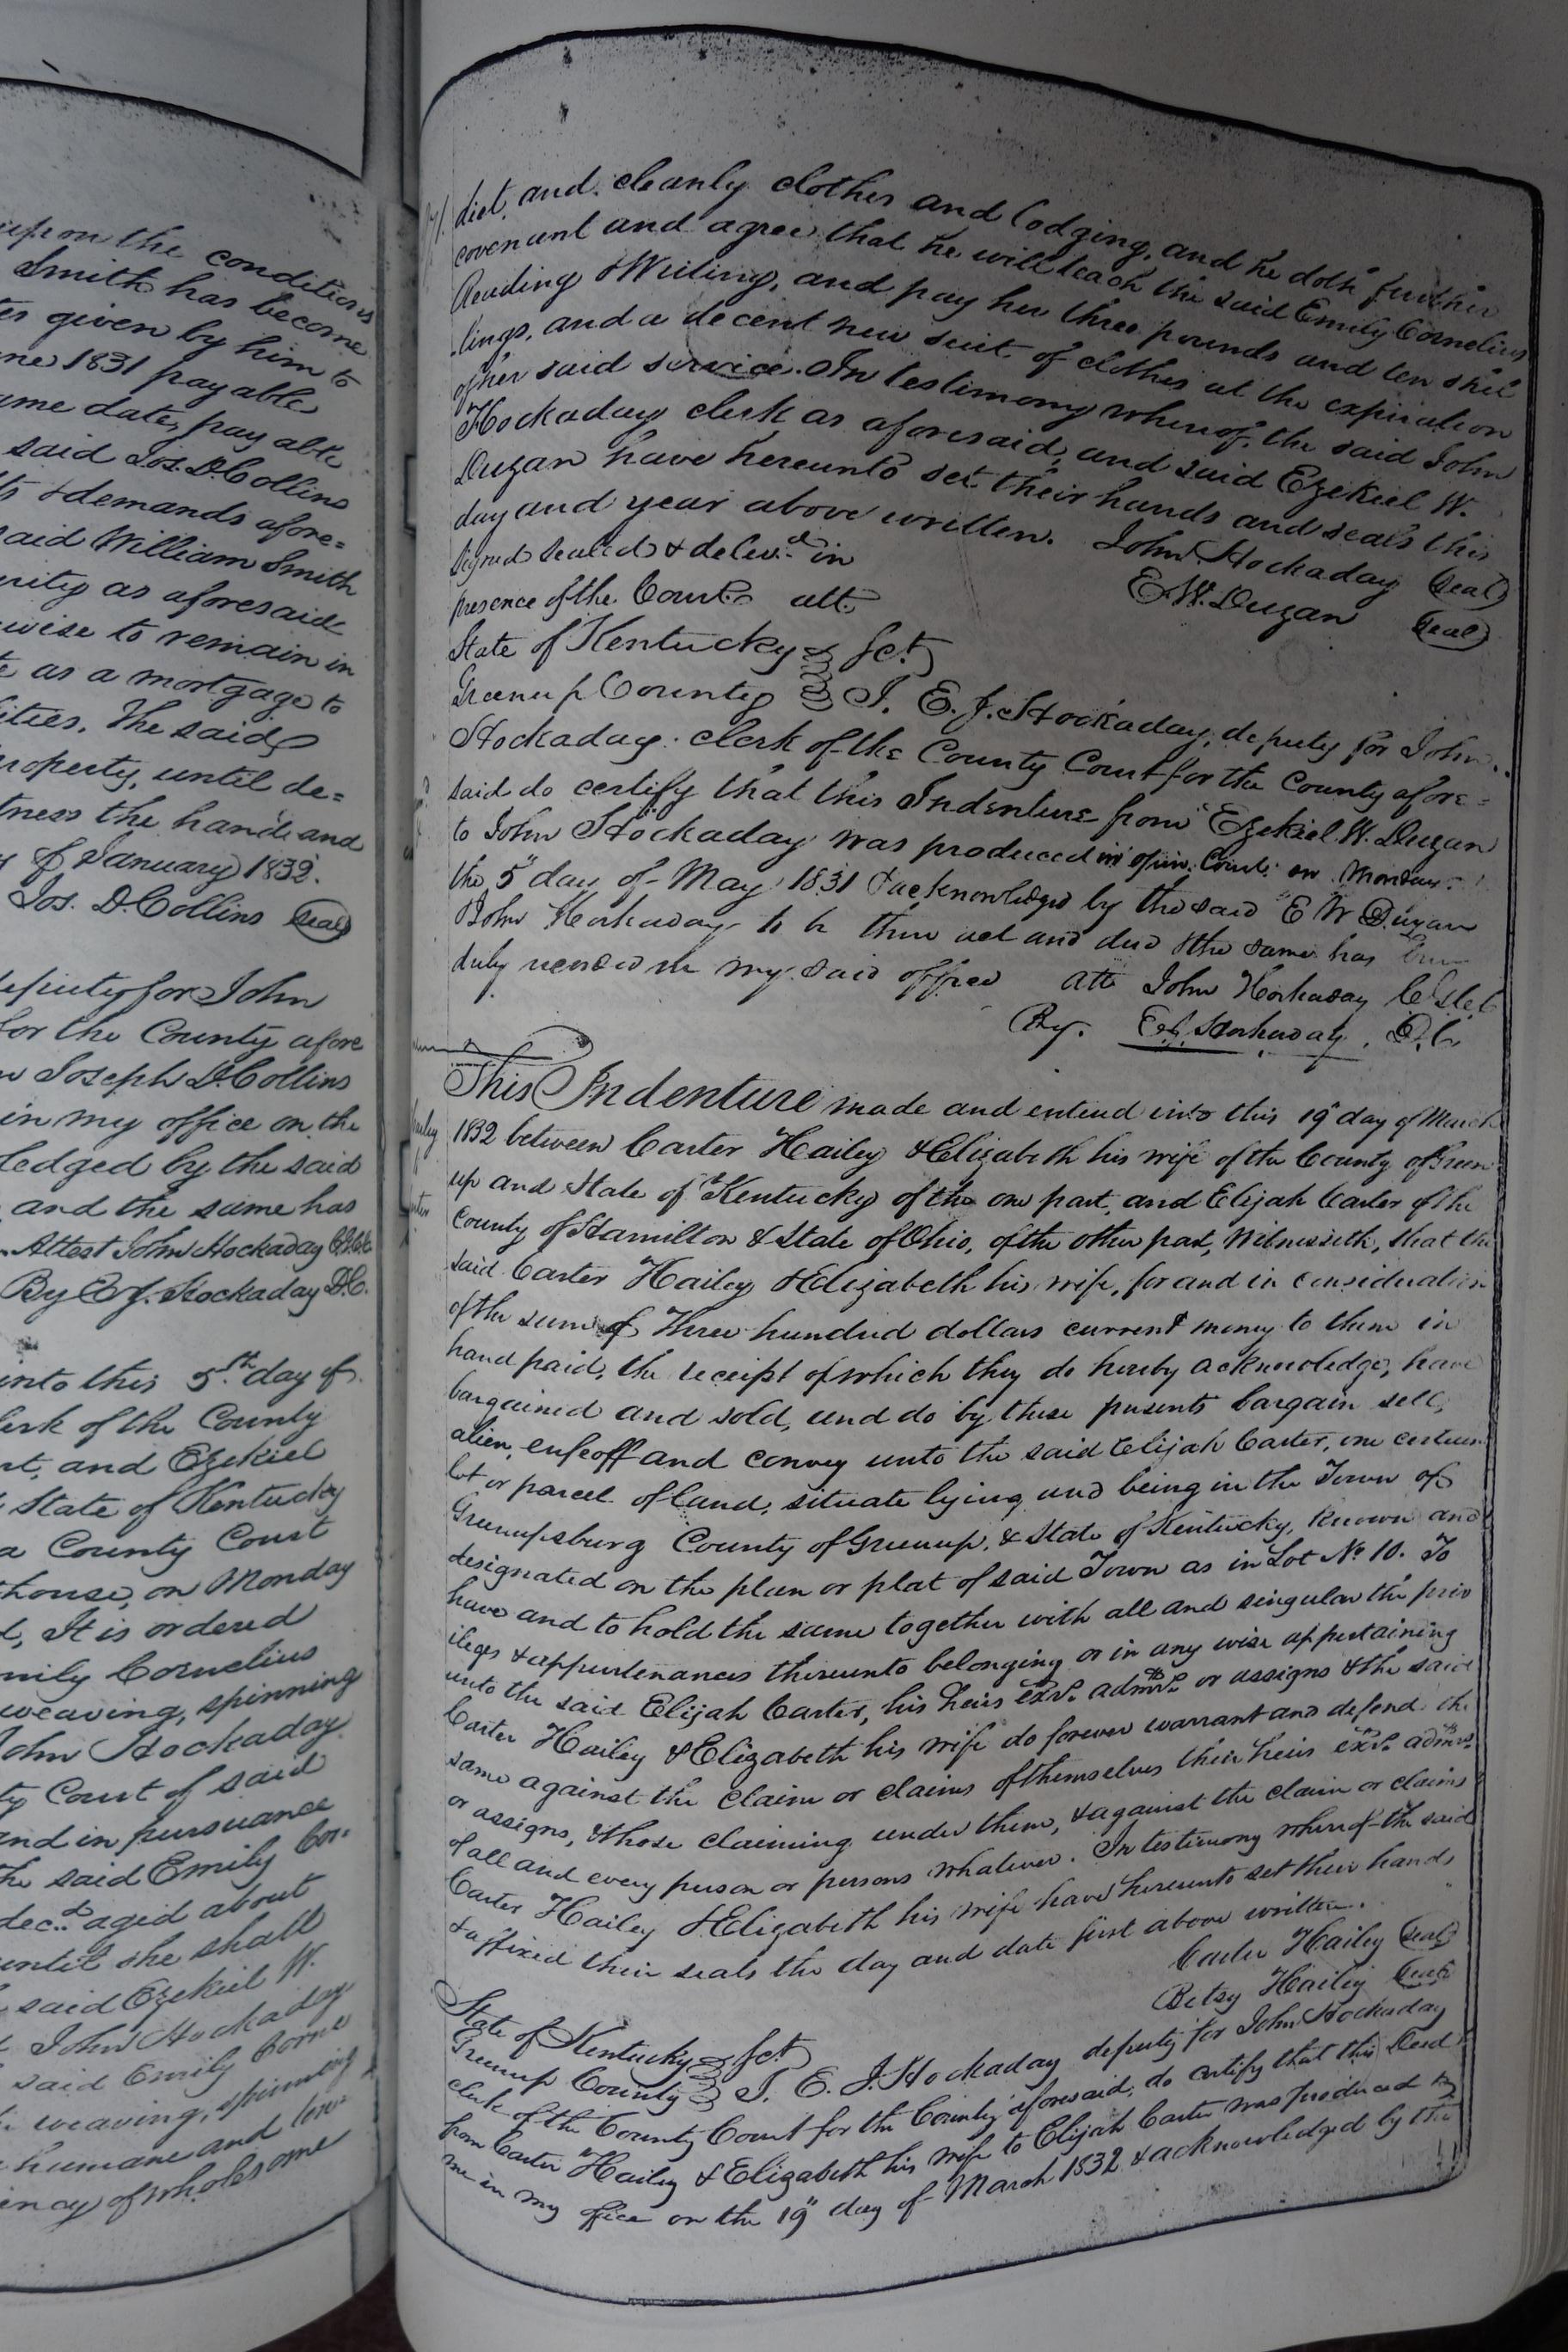 upon the conditions
Smith has become
given by him to
1831 payable
date, payable
said Jos. D. Collins
& demands afore=
said William Smith
as aforesaid
wise to remain in
as a mortgage to
The said
property, until de=
the hand and
of January 1832.
Jos. D. Collins (Seal)
deputy for John
for the County afore
Joseph D. Collins
in my office on the
by the said
and the same has
Attest John Hockaday
By E. J. Hockaday D.C.
into this 5th day of
of the County
and Ezekiel
State of Kentucky
a County Court
house, on Monday
It is ordered
Emily Cornelius
weaving, spinning
John Hockaday
Court of said
and in pursuance
the said Emily Cor-
decd aged about
until she shall
said Ezekiel W.
John Hockaday
said Emily Corne
weaving, spinning
humane and
of wholesome
diet, and cleanly clothes and lodging, and he doth further
covenant and agree that he will teach the said Emily Cornelius
Reading & Writing, and pay her three pounds and ten shil
lings, and a decent new suit of clothes at the expiration
of her said service. In testimony whereof, the said John
Hockaday clerk as aforesaid, and said Ezekiel W.
Duzan have hereunto set their hands and seals this
day and year above written. John Hockaday (Seal)
Signed sealed & delivd in E. W. Duzan (Seal)
presence of the Court att.
State of Kentucky Sct.
Greenup County I, E. J. Hockaday, deputy for John
Hockaday clerk of the County Court for the County afore=
said do certify that this Indenture from Ezekiel W. Duzan
to John Hockaday was produced in open Court on Monday
the 5" day of May 1831 & acknowledged by the said E W Duzan
& John Hockaday to be their act and deed & the same has been
duly recorded in my said office att John Hockaday
By E. J. Hockaday, D. C.
This Indenture made and entered into this 19" day of March
1832 between Carter Hailey & Elizabeth his wife of the County of Green
up and State of Kentucky of the one part, and Elijah Carter of the
County of Hamilton & State of Ohio, of the other part, Witnesseth, that the
said Carter Hailey & Elizabeth his wife, for and in consideration
of the sum of Three hundred dollars current money to them in
hand paid, the receipt of which they do hereby acknowledge, have
bargained and sold, and do by these presents bargain sell,
alien, enfeoff and convey unto the said Elijah Carter, one certain
lot or parcel of land, situate lying and being in the Town of
Greenupsburg County of Greenup, & State of Kentucky, known and
designated on the plan or plat of said Town as in Lot No 10. To
have and to hold the same together with all and singular the priv
ileges & appurtenances thereunto belonging or in any wise appertaining
unto the said Elijah Carter, his heirs exrs. admrs. or assigns & the said
Carter Hailey & Elizabeth his wife do forever warrant and defend the
same against the claim or claims of themselves their heirs exrs. admrs.
or assigns, & those claiming under them, & against the claim or claims
of all and every person or persons whatever. In testimony whereof the said
Carter Hailey & Elizabeth his wife have hereunto set their hands
& affixed their seals the day and date first above written.
Carter Hailey (Seal)
Betsy Hailey (Seal)
State of Kentucky Sct
Greenup County I, E. J. Hockaday deputy for John Hockaday
clerk of the County Court for the County aforesaid, do certify that this Deed
from Carter Hailey & Elizabeth his wife to Elijah Carter was produced to
me in my office on the 19" day of March 1832 & acknowledged by the